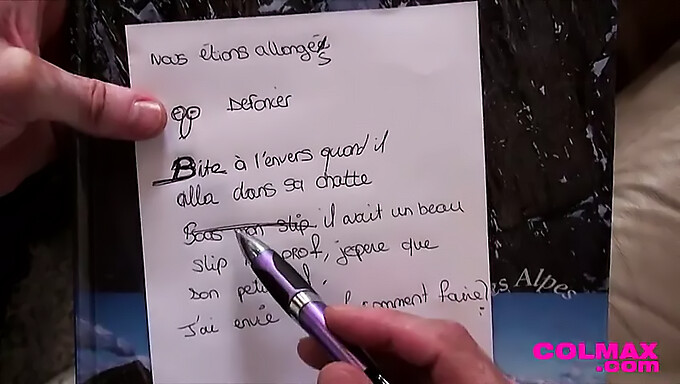 Nous étions allongés
Defoncer
Bite à l'envers quand il
alla dans sa chatte
Bous mon slip il avait un beau
slip prof, j'epere que
son peti
J'ai envie comment faire?
es Alpes
COLMAX
.com